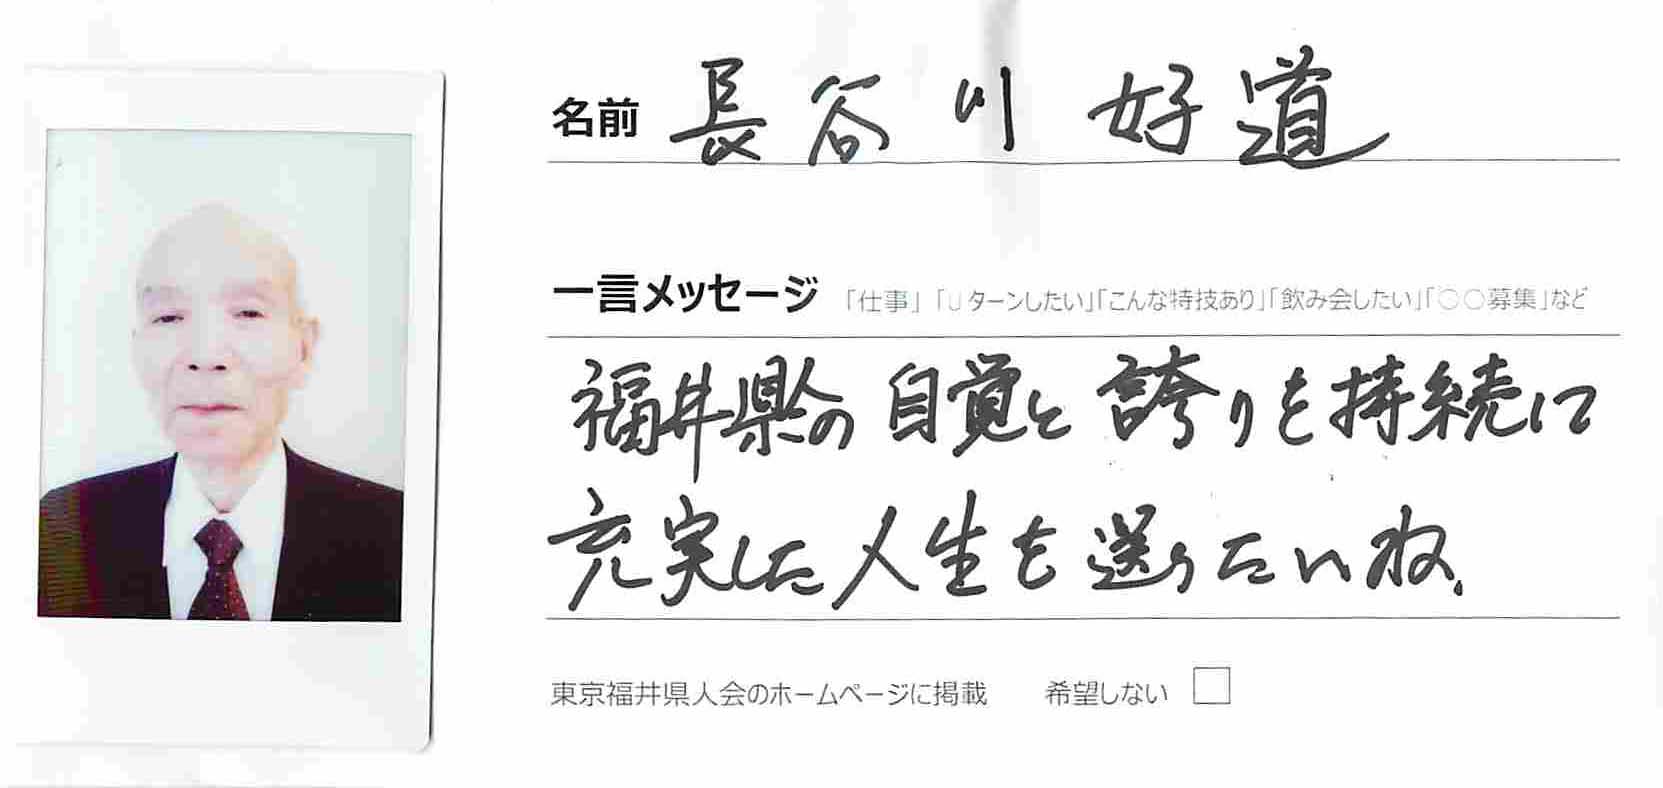 名前 長谷川 好道
一言メッセージ 「仕事」「Uターンしたい」「こんな特技あり」「飲み会したい」「○○募集」など
福井県人の自覚と誇りを持続に
充実した人生を送りたいね.
東京福井県人会のホームページに掲載 希望しない □